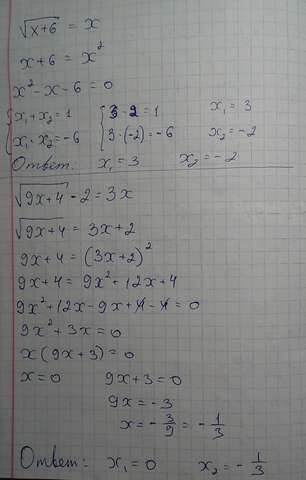 √(x+6) = x
x+6 = x²
x² - x - 6 = 0
{x₁+x₂=1 {3-2=1 x₁=3
{x₁·x₂=-6 {3·(-2)=-6 x₂=-2
Ответ: x₁=3 x₂=-2
√(9x+4) - 2 = 3x
√(9x+4) = 3x+2
9x+4 = (3x+2)²
9x+4 = 9x²+12x+4
9x²+12x-9x+4-4=0
9x²+3x=0
x(9x+3)=0
x=0 9x+3=0
9x=-3
x=-3/9=-1/3
Ответ: x₁=0 x₂=-1/3